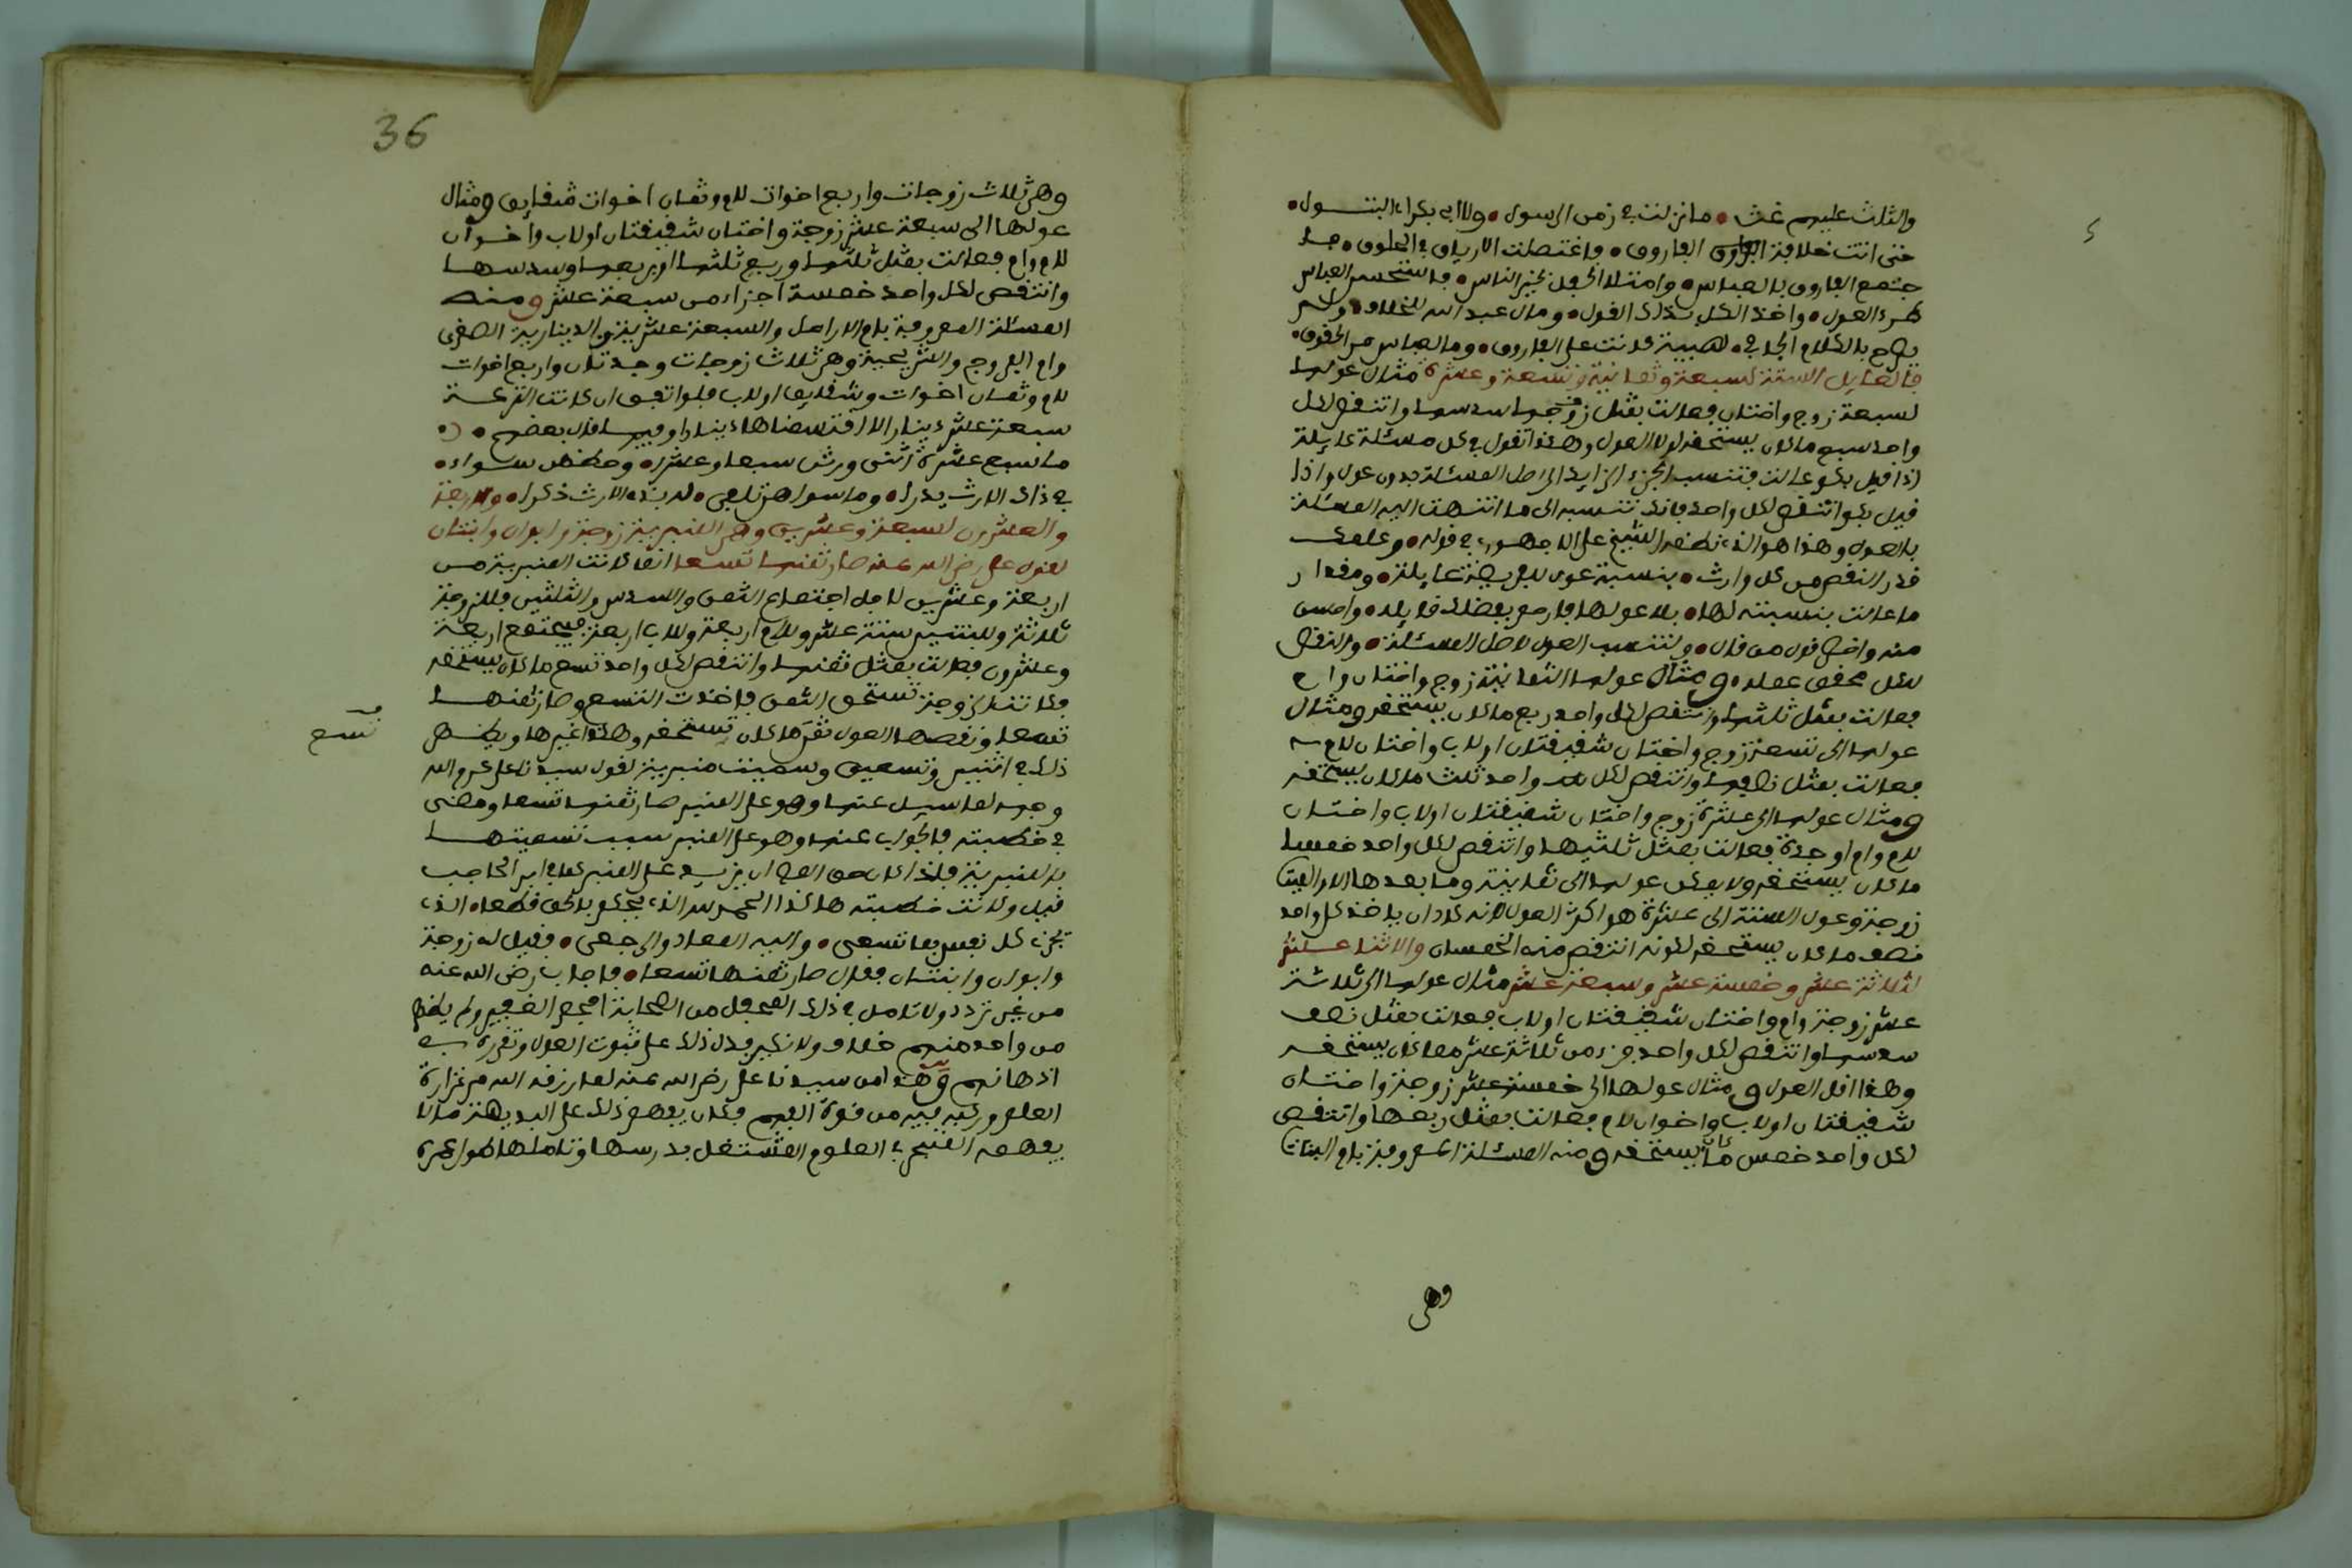 والثلث عليهم غث • ما نزلت في زمن الرسول • ولا ابي بكر ابا البتول •
حتى اتت خلافة الفاروق • واغتصلت الارياق في الحلوق •
جتمع الفاروق بالعباس • وامتلا الحفل بخير الناس • فاستحسن العباس
طرء العول • واخذ الكل بذلك القول • ومال عبد الله للخلاف • ولم
يبح بالكلام الجافي • لهيبة كانت على الفاروق • وما لعباس من الحقوق •
فالعايل الستة لسبعة وثمانية وتسعة وعشرة مثال عولها
لسبعة زوج واختان فعالت بمثل سدسها وانتقص لكل
واحد سبع ما كان يستحقه لولا العول وهكذا تقول في كل مسئلة عايلة
اذا قيل بكم عالت فتنسب الجزء الزايد الى اصل المسئلة بدون عول واذا
قيل بكم انتقص لكل واحد فانك تنسبه الى ما انتهت اليه المسئلة
بالعول وهذا هو الذي نظمه الشيخ علي الاجهوري في قوله • وعلمك
قدر النقص من كل وارث • بنسبة عول للفريضة عايلة • ومقدار
ما عالت بنسبته لها • بلا عولها فارحم بفضلك قايله • واحسن
منه واخصر قول من قال • ولتنسب العول لاصل المسئلة • والنقص
لكل محقق عمله • ومثال عولها الثمانية زوج واختان وام
فعالت بمثل ثلثها وانتقص لكل واحد ربع ما كان يستحقه ومثال
عولها الى تسعة زوج واختان شقيقتان او لاب واختان لام
فعالت بمثل نصفها وانتقص لكل واحد ثلث ما كان يستحقه
ومثال عولها الى عشرة زوج واختان شقيقتان او لاب واختان
لام وام او جدة فعالت بمثل ثلثيها وانتقص لكل واحد خمسا
ما كان يستحقه ولا يمكن عولها الى ثمانية وما بعدها الا والميت
زوجة وعول الستة الى عشرة هو اكثر العول لانه كاد ان ياخذ كل واحد
نصف ما كان يستحقه لكونه انتقص منه الخمسان والاثنا عشر
لثلاثة عشر وخمسة عشر وسبعة عشر مثال عولها الى ثلاثة
عشر زوجة وام واختان شقيقتان او لاب فعالت بمثل نصف
سدسها وانتقص لكل واحد جزء من ثلاثة عشر مما كان يستحقه
وهذا اقل العول ومثال عولها الى خمسة عشر زوجة واختان
شقيقتان او لاب واخوان لام فعالت بمثل ربعها وانتقص
لكل واحد خمس ما كان يستحقه ومنه المسئلة المعروفة بام البنات
وهي
36
وهي ثلاث زوجات واربع اخوات للام وثمان اخوات شقايق ومثال
عولها الى سبعة عشر زوجة واختان شقيقتان او لاب واخوان
للام وام فعالت بمثل ثلثها وربع ثلثها او بربعها وسدسها
وانتقص لكل واحد خمسة اجزاء من سبعة عشر ومنه
المسئلة المعروفة بام الارامل والسبعة عشرية والدينارية الصغرى
وام الفروج والشريحية وهي ثلاث زوجات وجدتان واربع اخوات
للام وثمان اخوات وشقايق او لاب فلو اتفق ان كانت التركة
سبعة عشر دينارا لاقتسمناها دينارا وفيها قال بعضهم •
ما سبع عشرة انثى ورثن سبعا وعشرا • وحظهن سواء •
في ذاك الارث يدرا • وما سواهن تلفي • لهذه الارث ذكرا • والاربعة
والعشرون لسبعة وعشرين وهي المنبرية زوجة وابوان وابنتان
لقول علي رضي الله عنه صار ثمنها تسعا انما كانت المنبرية من
اربعة وعشرين لاجل اجتماع الثمن والسدس والثلثين فللزوجة
ثلاثة وللبنتين ستة عشر وللام اربعة وللاب اربعة فيجتمع اربعة
وعشرون فعالت بمثل ثمنها وانتقص لكل واحد تسع ما كان يستحقه
فكانت الزوجة تستحق الثمن فاخذت التسع وصار ثمنها
تسعا ونقصها العول ما كان تستحقه وهكذا غيرها
تسع
ذلك في اثنين وتسعين وسميت منبرية لقول سيدنا علي كرم الله
وجهه لما سيل عنها وهو على المنبر صار ثمنها تسعا ومضى
في خطبته فالجواب عنها وهو على المنبر سبب تسميتها
بالمنبرية فلذا كان حق العالم ان يزيد على المنبر كما في ابن الحاجب
قيل وكانت خطبته هكذا الحمد لله الذي يحكم بالحق قطعا • الذي
يجزي كل نفس بما تسعى • واليه المعاد والرجعى • فقيل له زوجة
وابوان وابنتان فقال صار ثمنها تسعا • فاجاب رضي الله عنه
من غير تردد ولا تامل في ذلك المحفل من الصحابة الجم الغفير ولم يظهر
من واحد منهم خلاف ولا نكير فدل ذلك على ثبوت العول وتقرره في
اذهانهم وهذا من سيدنا علي رضي الله عنه لما رزقه الله من غزارة
العلم وركبه فيه من قوة الفهم فكان يفهم ذلك على البديهة ما لا
يفهمه المتبحر بالعلوم المشتغل بدرسها وتاملها طول عمره